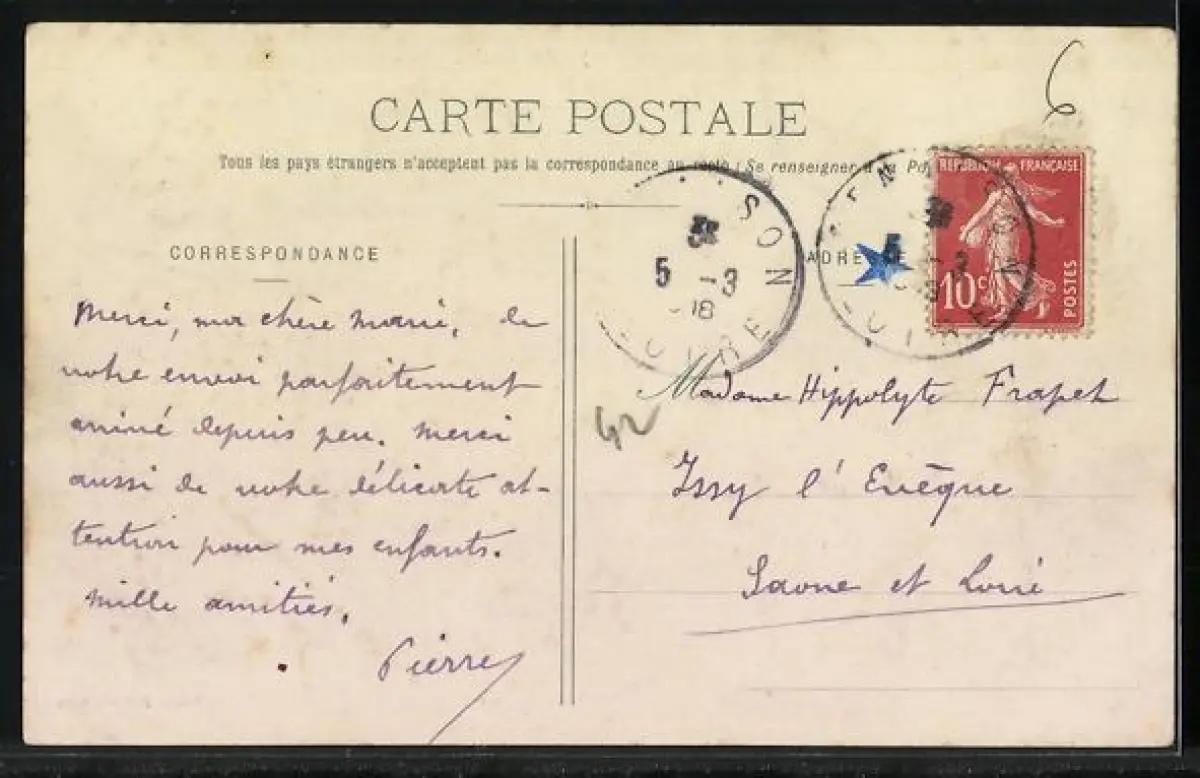 6
CARTE POSTALE
Tous les pays étrangers n'acceptent pas la correspondance au recto : Se renseigner à la
REPUBLIQUE FRANÇAISE
10c
POSTES
SON
5 -3
5 -3
CORRESPONDANCE
ADRESSE
Merci, ma chère Marie, de
votre envoi parfaitement
arrivé depuis peu. Merci
aussi de votre délicate at-
tention pour mes enfants.
Mille amitiés.
Pierre
42
Madame Hippolyte Frapet
Issy l'Evêque
Saone et Loire